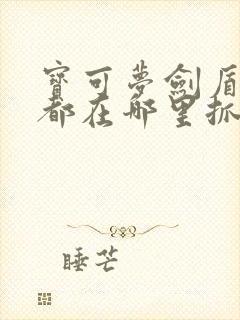 寶可夢劍盾
都在哪里抓
睡芒